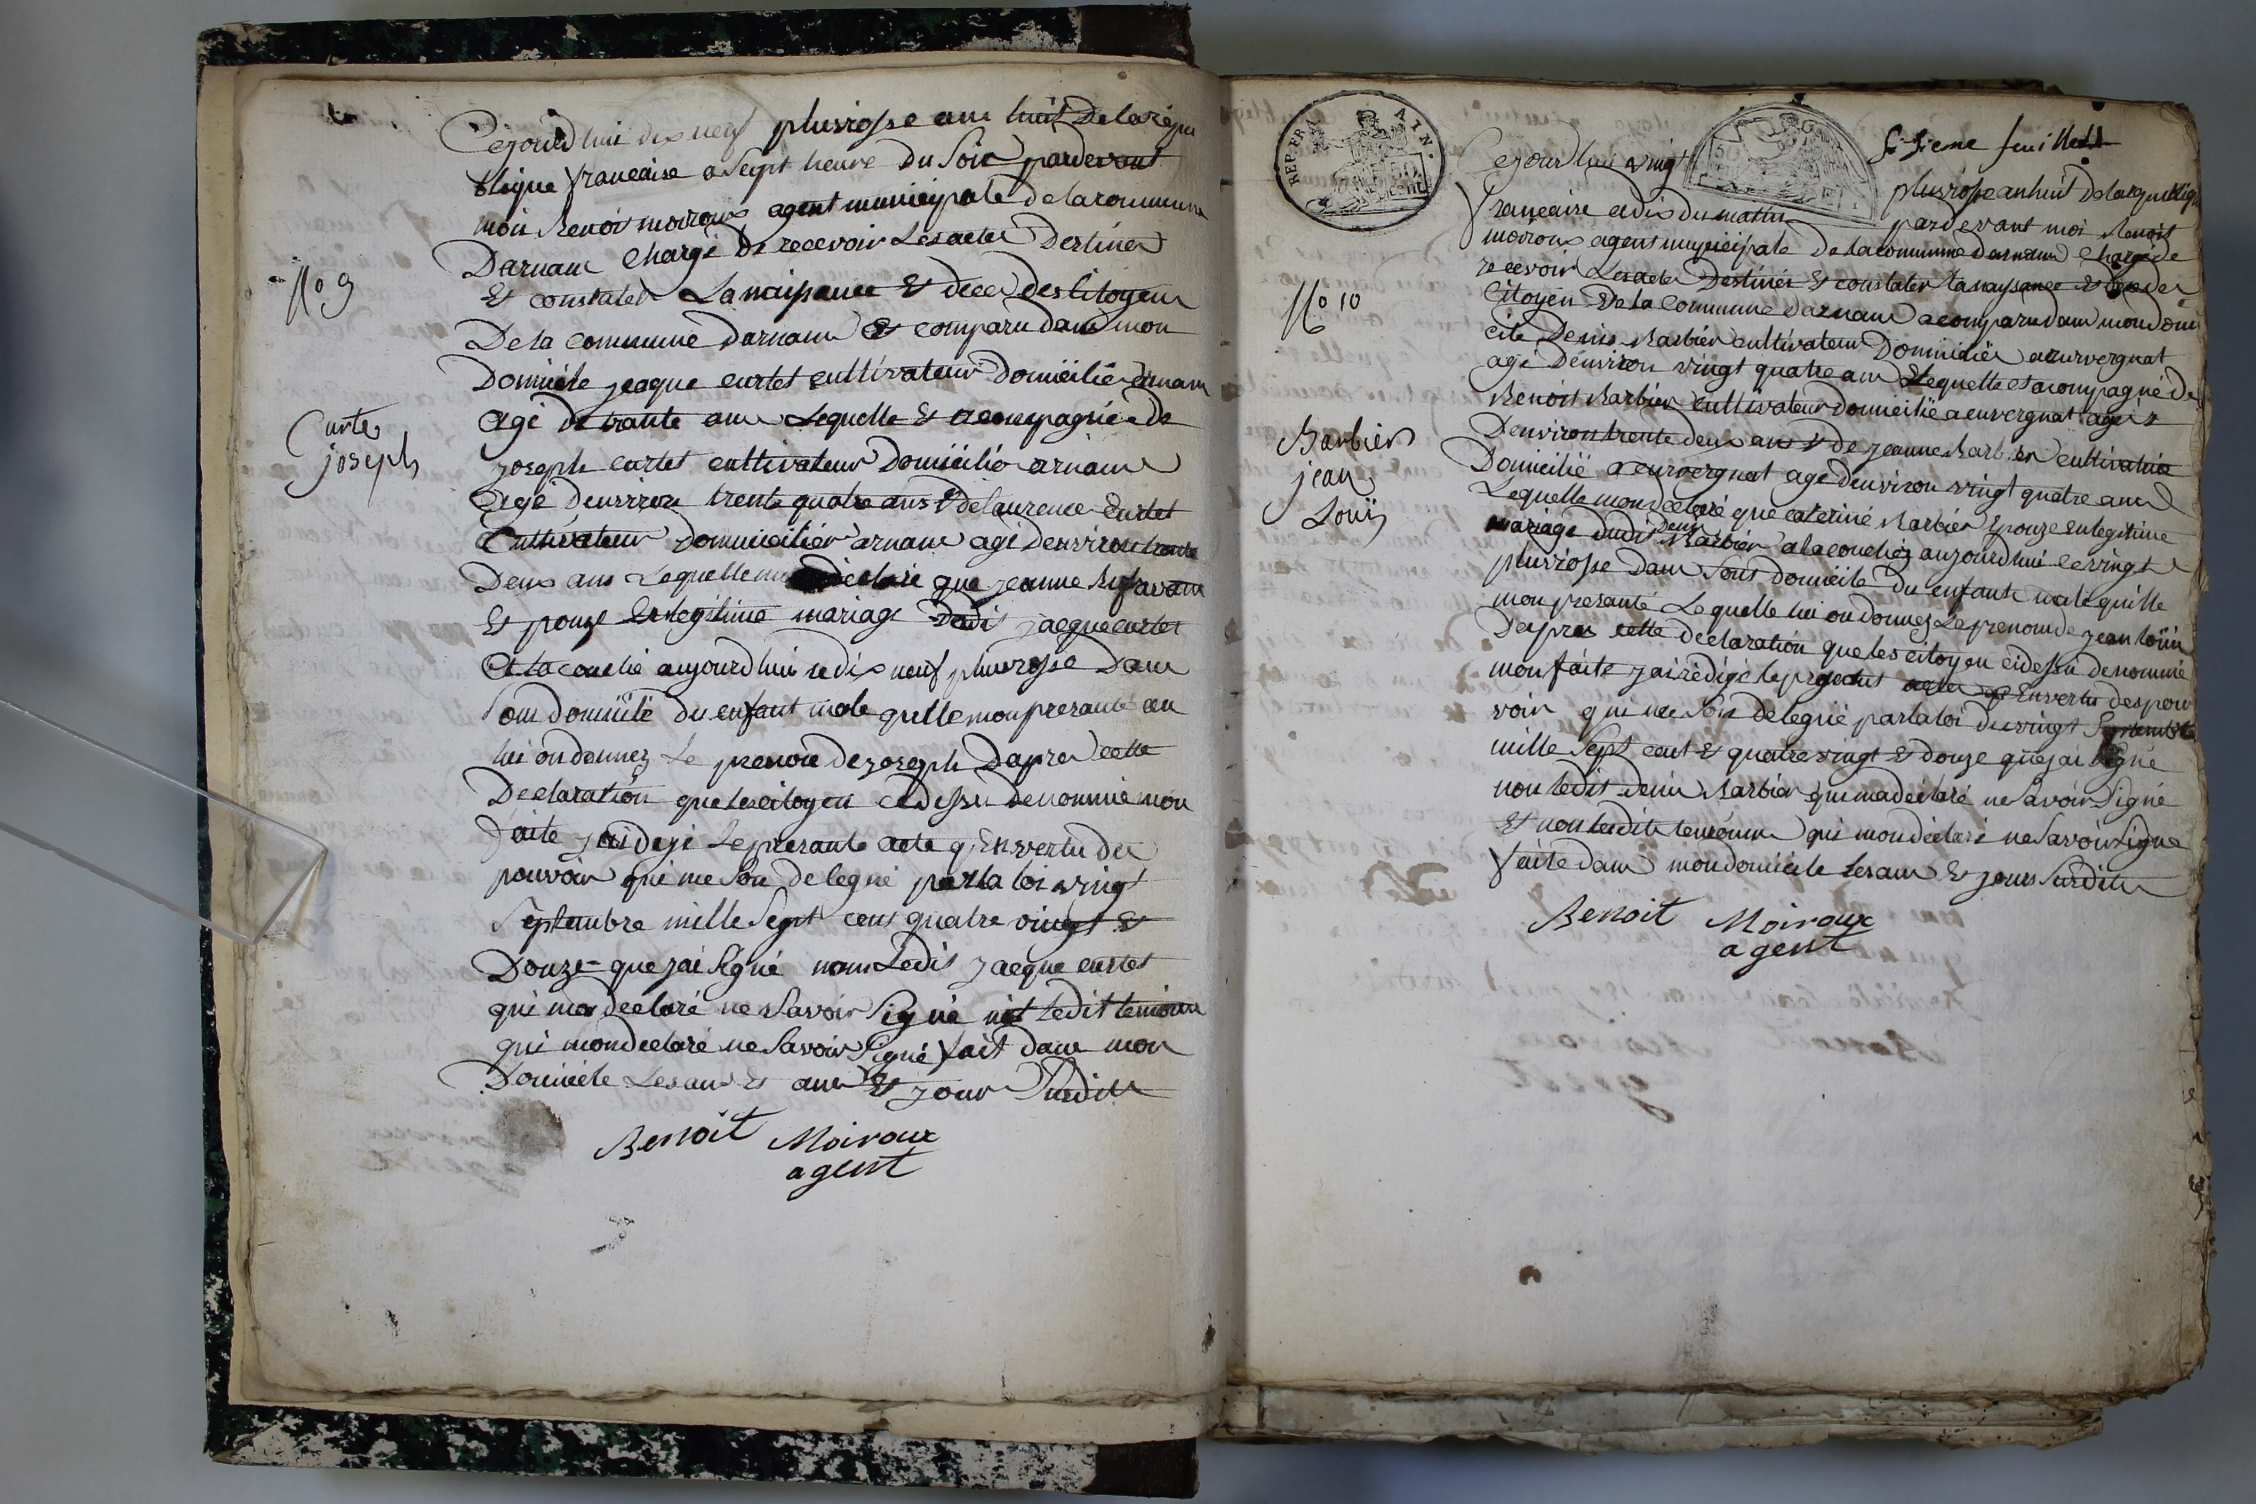 Cejourd'hui dix neuf pluviosse ann huit de la répu
blique francaise a Sept heure du Soir pardevant
moi Benoit moiroux agent municipale de la commune
Darnam chargé de recevoir Les actes Destines
No 9
Et constater La naissance Et dece des Citoyens
De la commune darnam Et comparu dans mon
Domicile jeaque curtet cultivateur domicilié arnam
agé de trante ans Lequelle Et acompagnée de
Curtet
joseph
joseph curtet cultivateur Domicilié arnam
agé denviron trente quatre ans & de laurence curtet
Cultivateur domicilié arnam agé denviron trente
Deux ans Lequelle déclaré que jeanne
Et pouze En legitime mariage dudit jacque curtet
Et lacouché aujourdhui le dix neuf pluviosse Dans
Son domicile du enfant male quelle mon presanté on
lui on donnez Le prenom de joseph Dapres cette
Declaration que les citoyen cidessu denommé mon
faite jai Le presante acte En vertu des
pouvoir qui me Son delegué par la loi vingt
Septembre mille Sept cens quatre vingt &
Douze que jai Signé non Ledis jacque curtet
qui ma declaré ne Savoir Signé nit ledit temoins
qui mon declaré ne Savoir Signé fait dans mon
Domicile Les ans Et ans Et jour Susdits
Benoit Moiroux
agent
REP. FRA. AIN.
Sisieme feuillet
Cejourdhui vingt pluviosse an huit de la republique
francaise a dix du matin pardevant moi Benoit
moiroux agent municipale de la commune darnam chargé de
recevoir Les actes Destinés Et constater la naysance Et dece des
No 10
Citoyen De la Commune darnam a comparu dans mon domi
cile Denis Barbier cultivateur Domicilié a curvergnat
agé Denviron vingt quatre ans Lequelle est acompagné de
Benoit Barbier cultivateur domicilié a curvergnat agé
Barbier
jean
Louis
Denviron trente deux ans & de jeanne Barbier cultivatrice
Domicilié a curvergnat agé denviron vingt quatre ans
Lequelle mon déclaré que caterine Barbier Epouze en legitime
mariage dudit Denis Barbier a lacouchez aujourdhui le vingt
pluviosse Dans Sont domicile du enfant male quille
mon presanté Lequelle lui on donnez Le prenom de jean louis
Dapres cette declaration que les citoyen cidessu denommé
mon faite jai rédigé le presant acte En vertu des pou
voir qui me Son delegué par la loi du vingt Septembre
mille Sept cent Et quatre vingt Et douze que jai Signé
non ledit denis Barbier qui ma declaré ne Savoir Signé
Et non ledit temoins qui mon declaré ne Savoir Signe
faite dans mon domicile les ans Et jours Susdits
Benoit Moiroux
agent